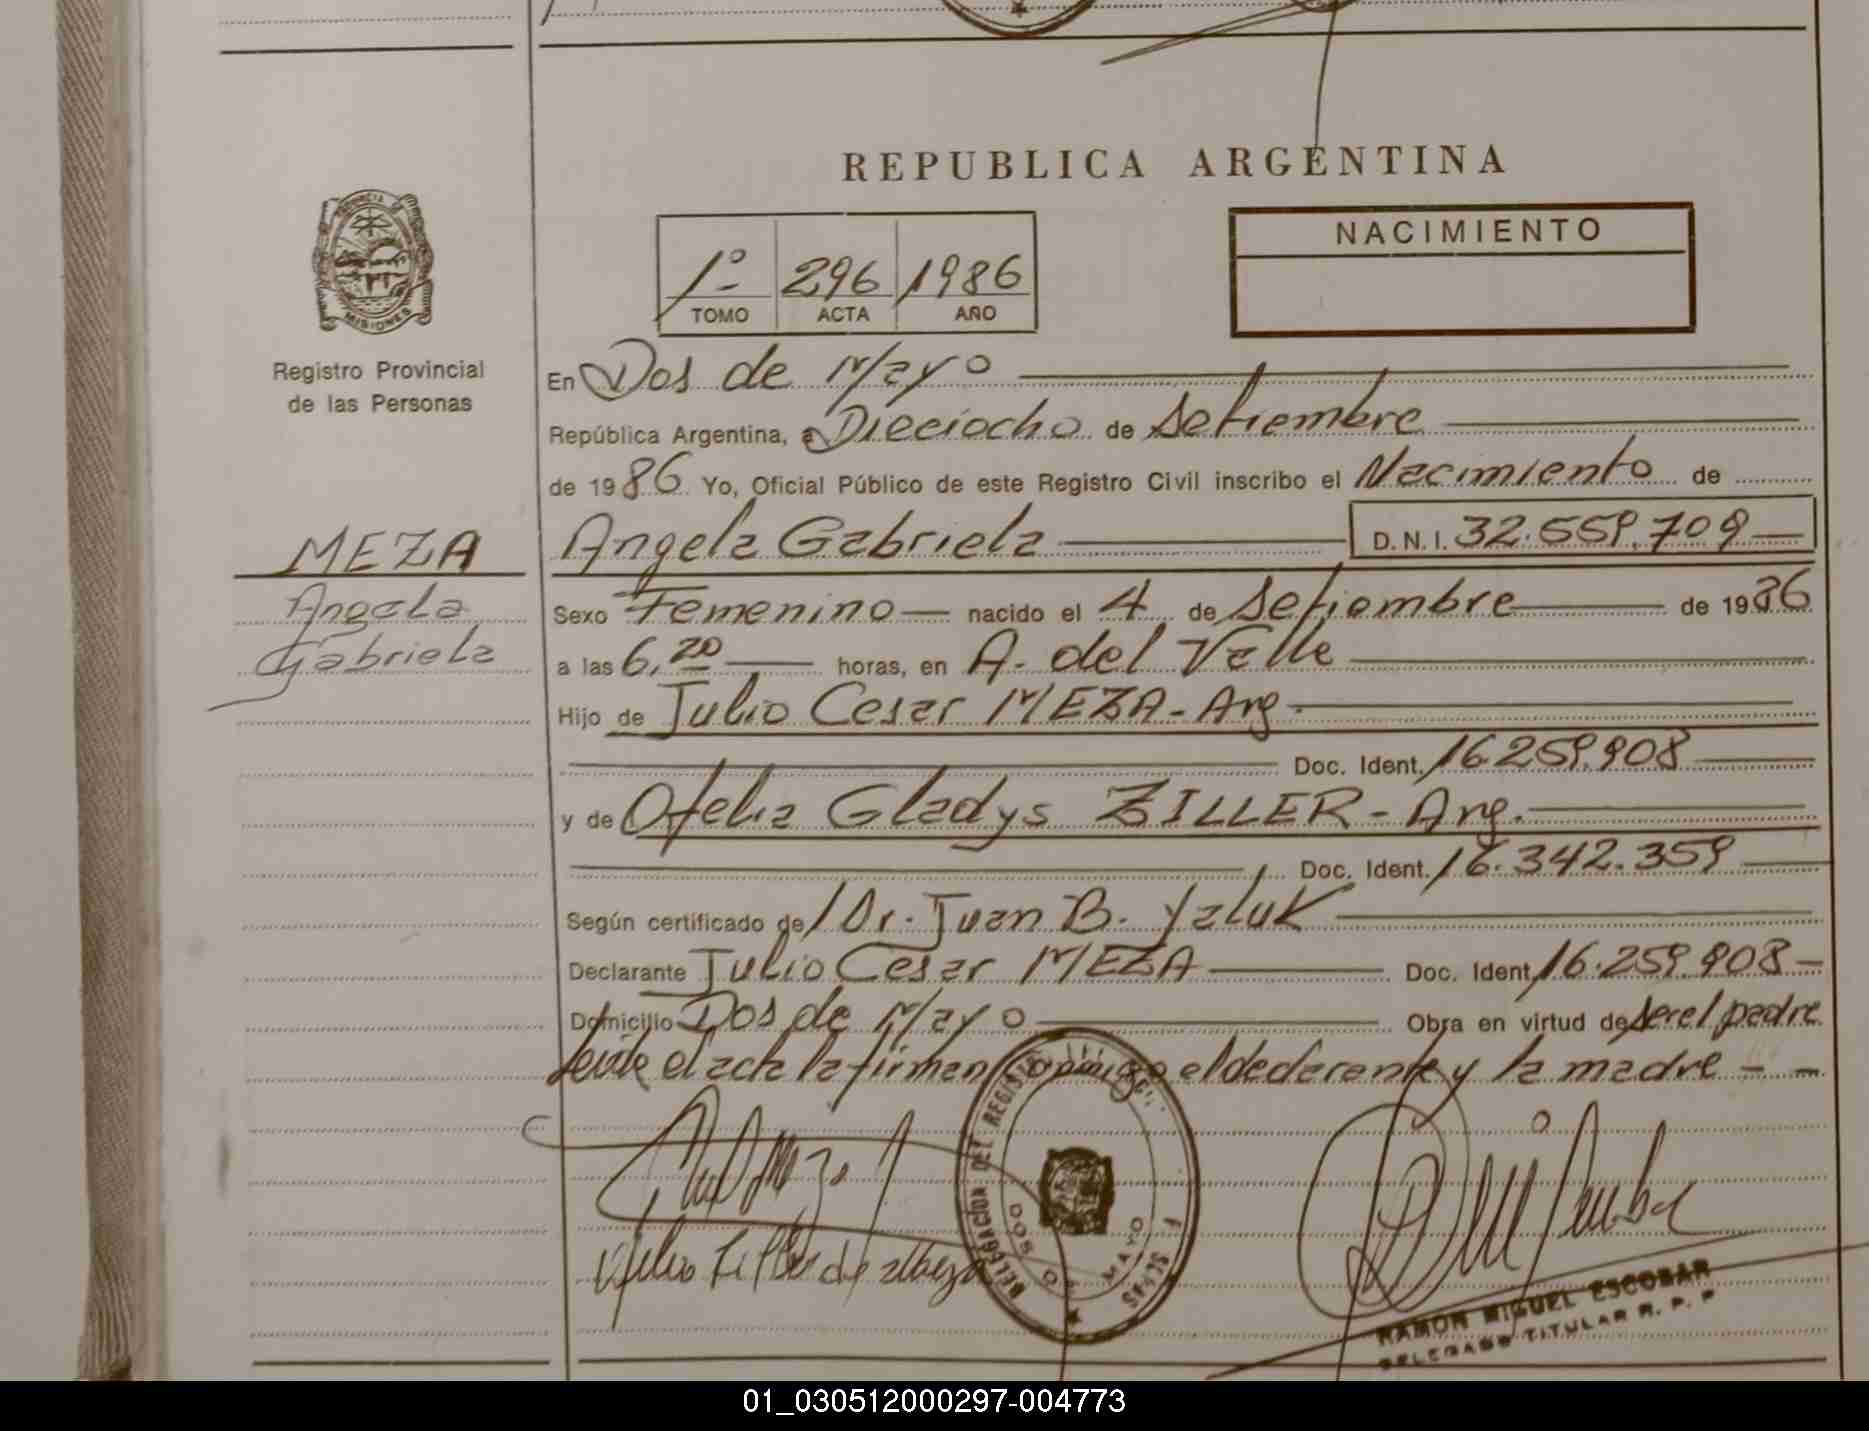 REPUBLICA ARGENTINA
PROVINCIA DE MISIONES
Registro Provincial
de las Personas
1º 296 1986
TOMO ACTA AÑO
NACIMIENTO
En Dos de Mayo
República Argentina, a Dieciocho de Setiembre
de 1986 Yo, Oficial Público de este Registro Civil inscribo el Nacimiento de
MEZA
Angela
Gabriela
Angela Gabriela D.N.I. 32.559.709
Sexo Femenino nacido el 4 de Setiembre de 1986
a las 6,20 horas, en A. del Valle
Hijo de Julio Cesar MEZA - Arg.
Doc. Ident. 16.259.908
y de Ofelia Gladys ZILLER - Arg.
Doc. Ident. 16.342.359
Según certificado de Dr. Juan B. Yaluk
Declarante Julio Cesar MEZA Doc. Ident. 16.259.908
Domicilio Dos de Mayo Obra en virtud de ser el padre
leida el acta la firman conmigo el declarante y la madre
DELEGACION DEL REGISTRO
DOS DE MAYO
RAMON MIGUEL ESCOBAR
DELEGADO TITULAR R. P. P.
01_030512000297-004773